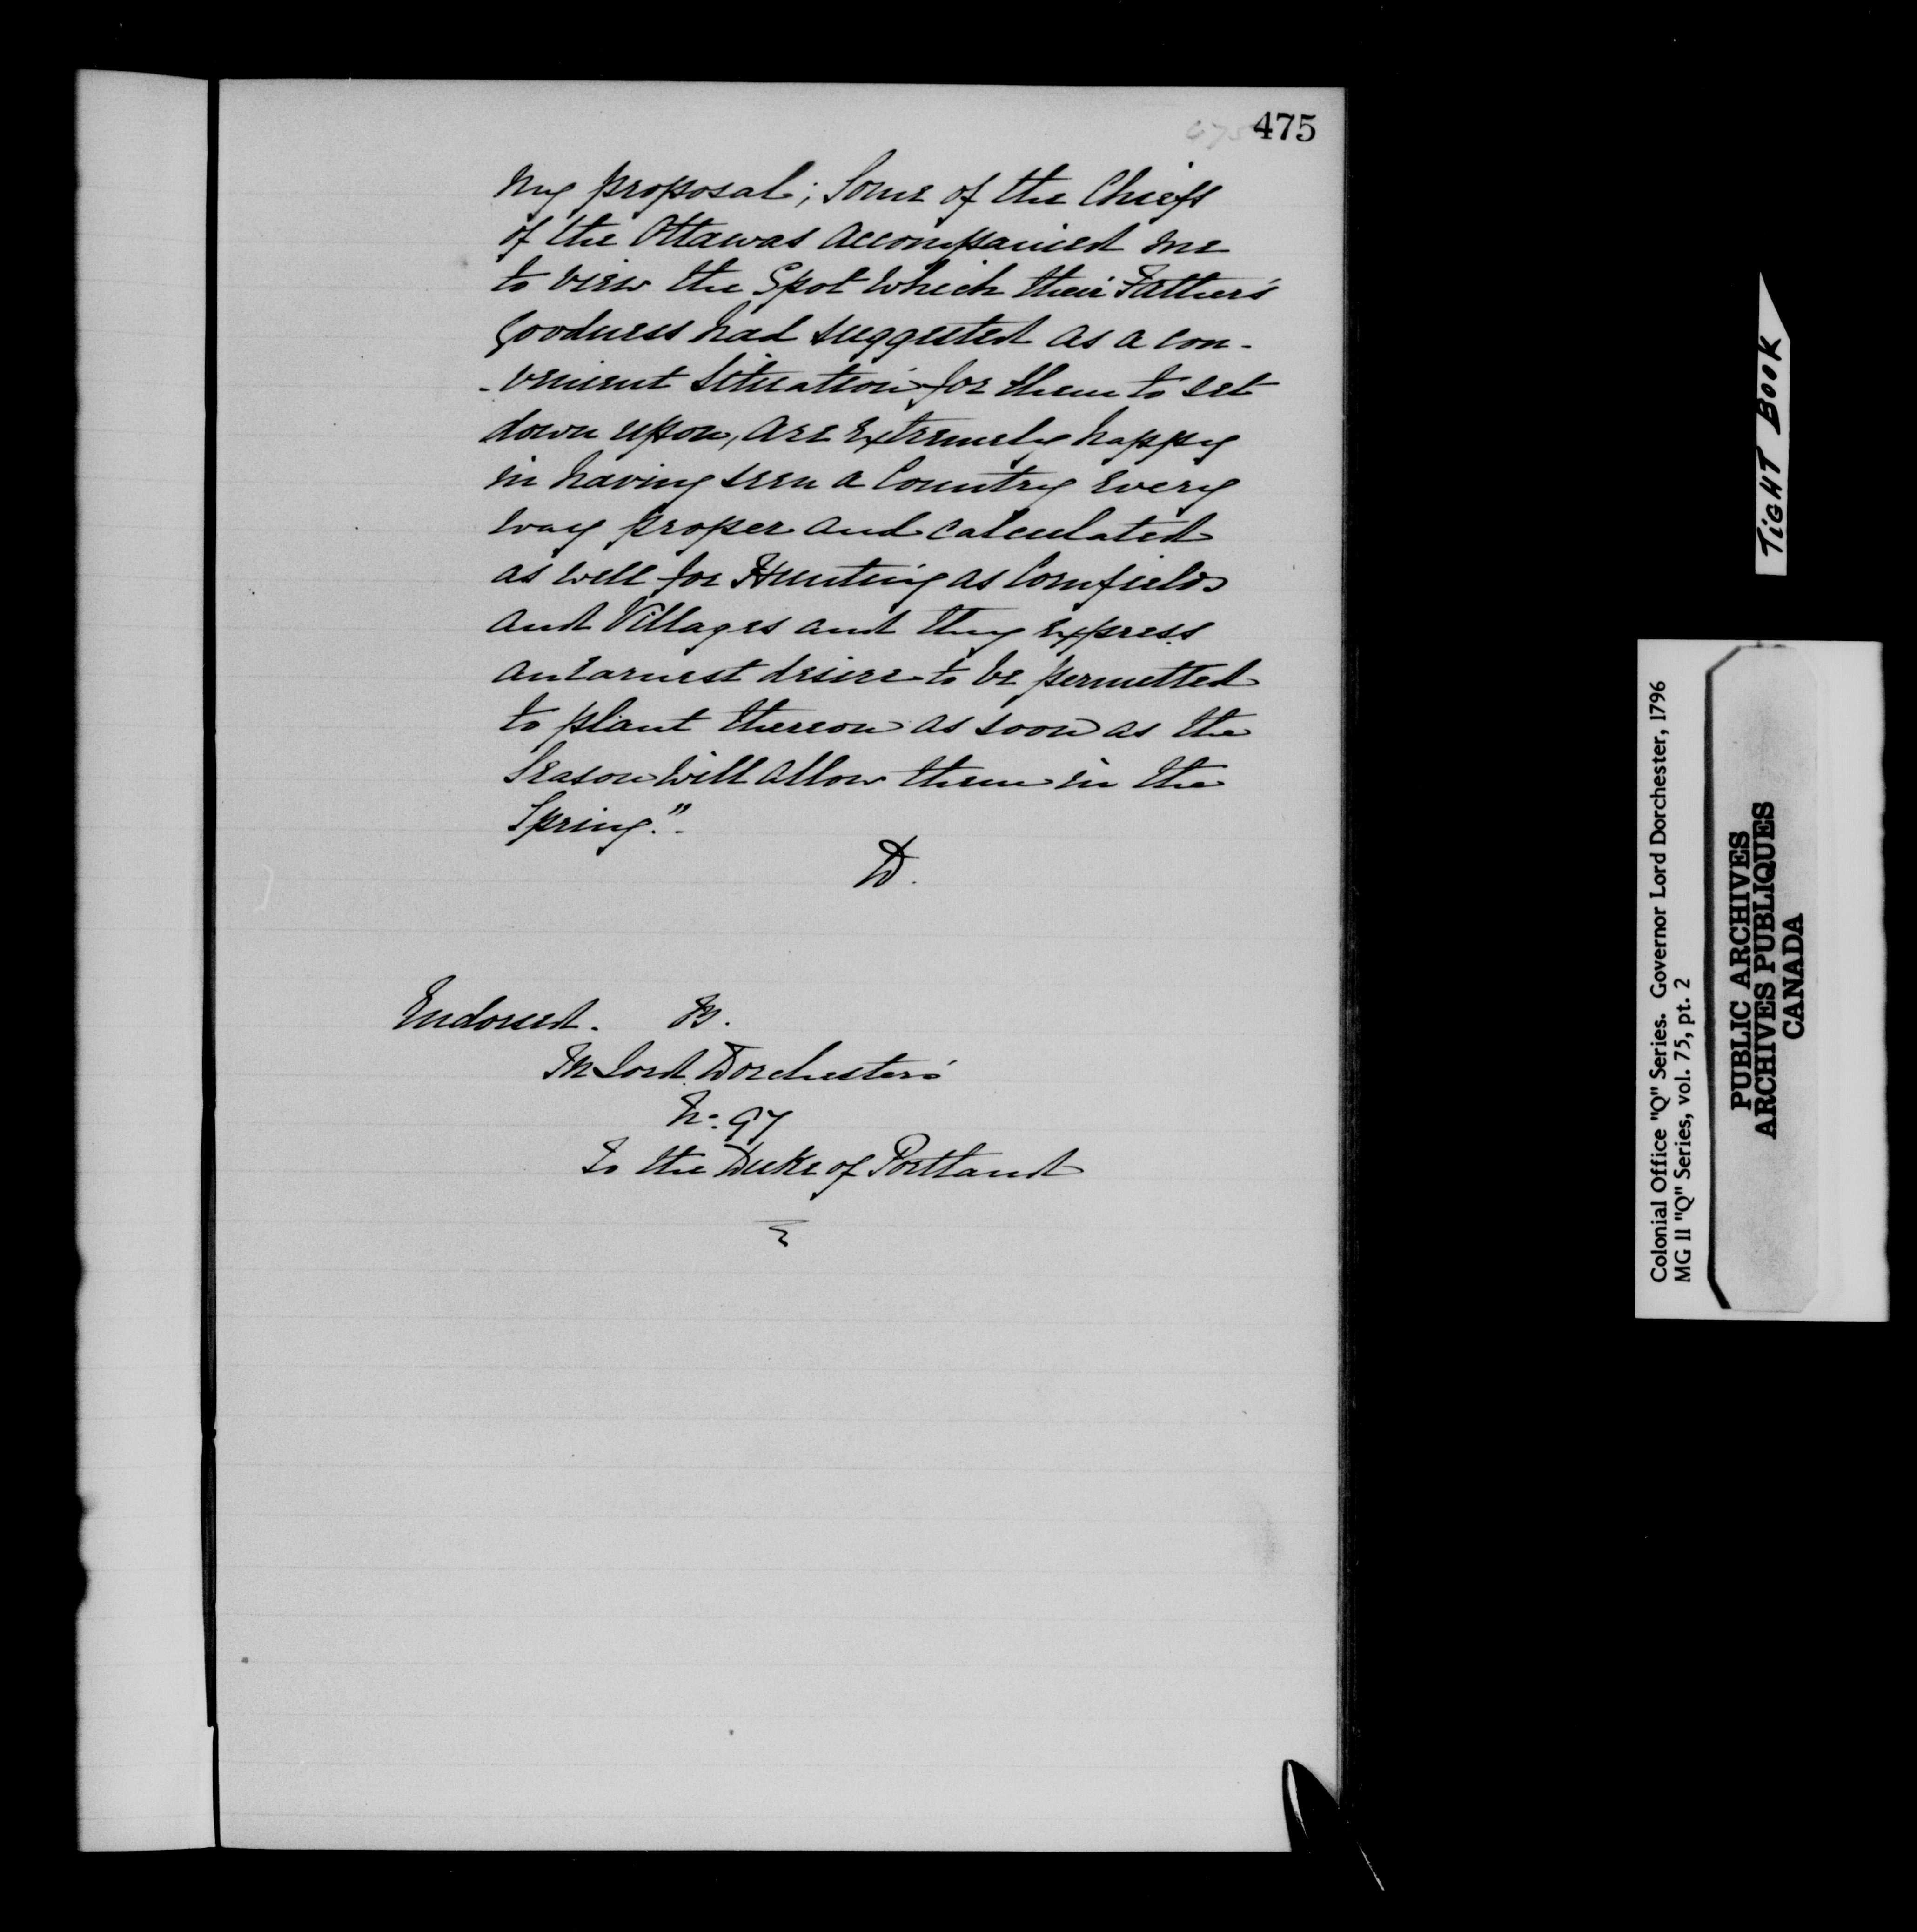 475
475
my proposal; Some of the Chiefs
of the Ottawas accompanied me
to view the Spot which their Father's
goodness had suggested as a con-
-venient Situation for them to set
down upon, are extremely happy
in having seen a Country every
way proper and calculated
as well for Hunting as Cornfields
and Villages and they express
an Earnest desire to be permitted
to plant thereon as soon as the
Season will allow them in the
Spring."-
D.
Endorsed. B.
In Lord Dorchester's
No: 97
To the Duke of Portland
TIGHT BOOK
Colonial Office "Q" Series. Governor Lord Dorchester, 1796
MG 11 "Q" Series, vol. 75, pt. 2
PUBLIC ARCHIVES
ARCHIVES PUBLIQUES
CANADA